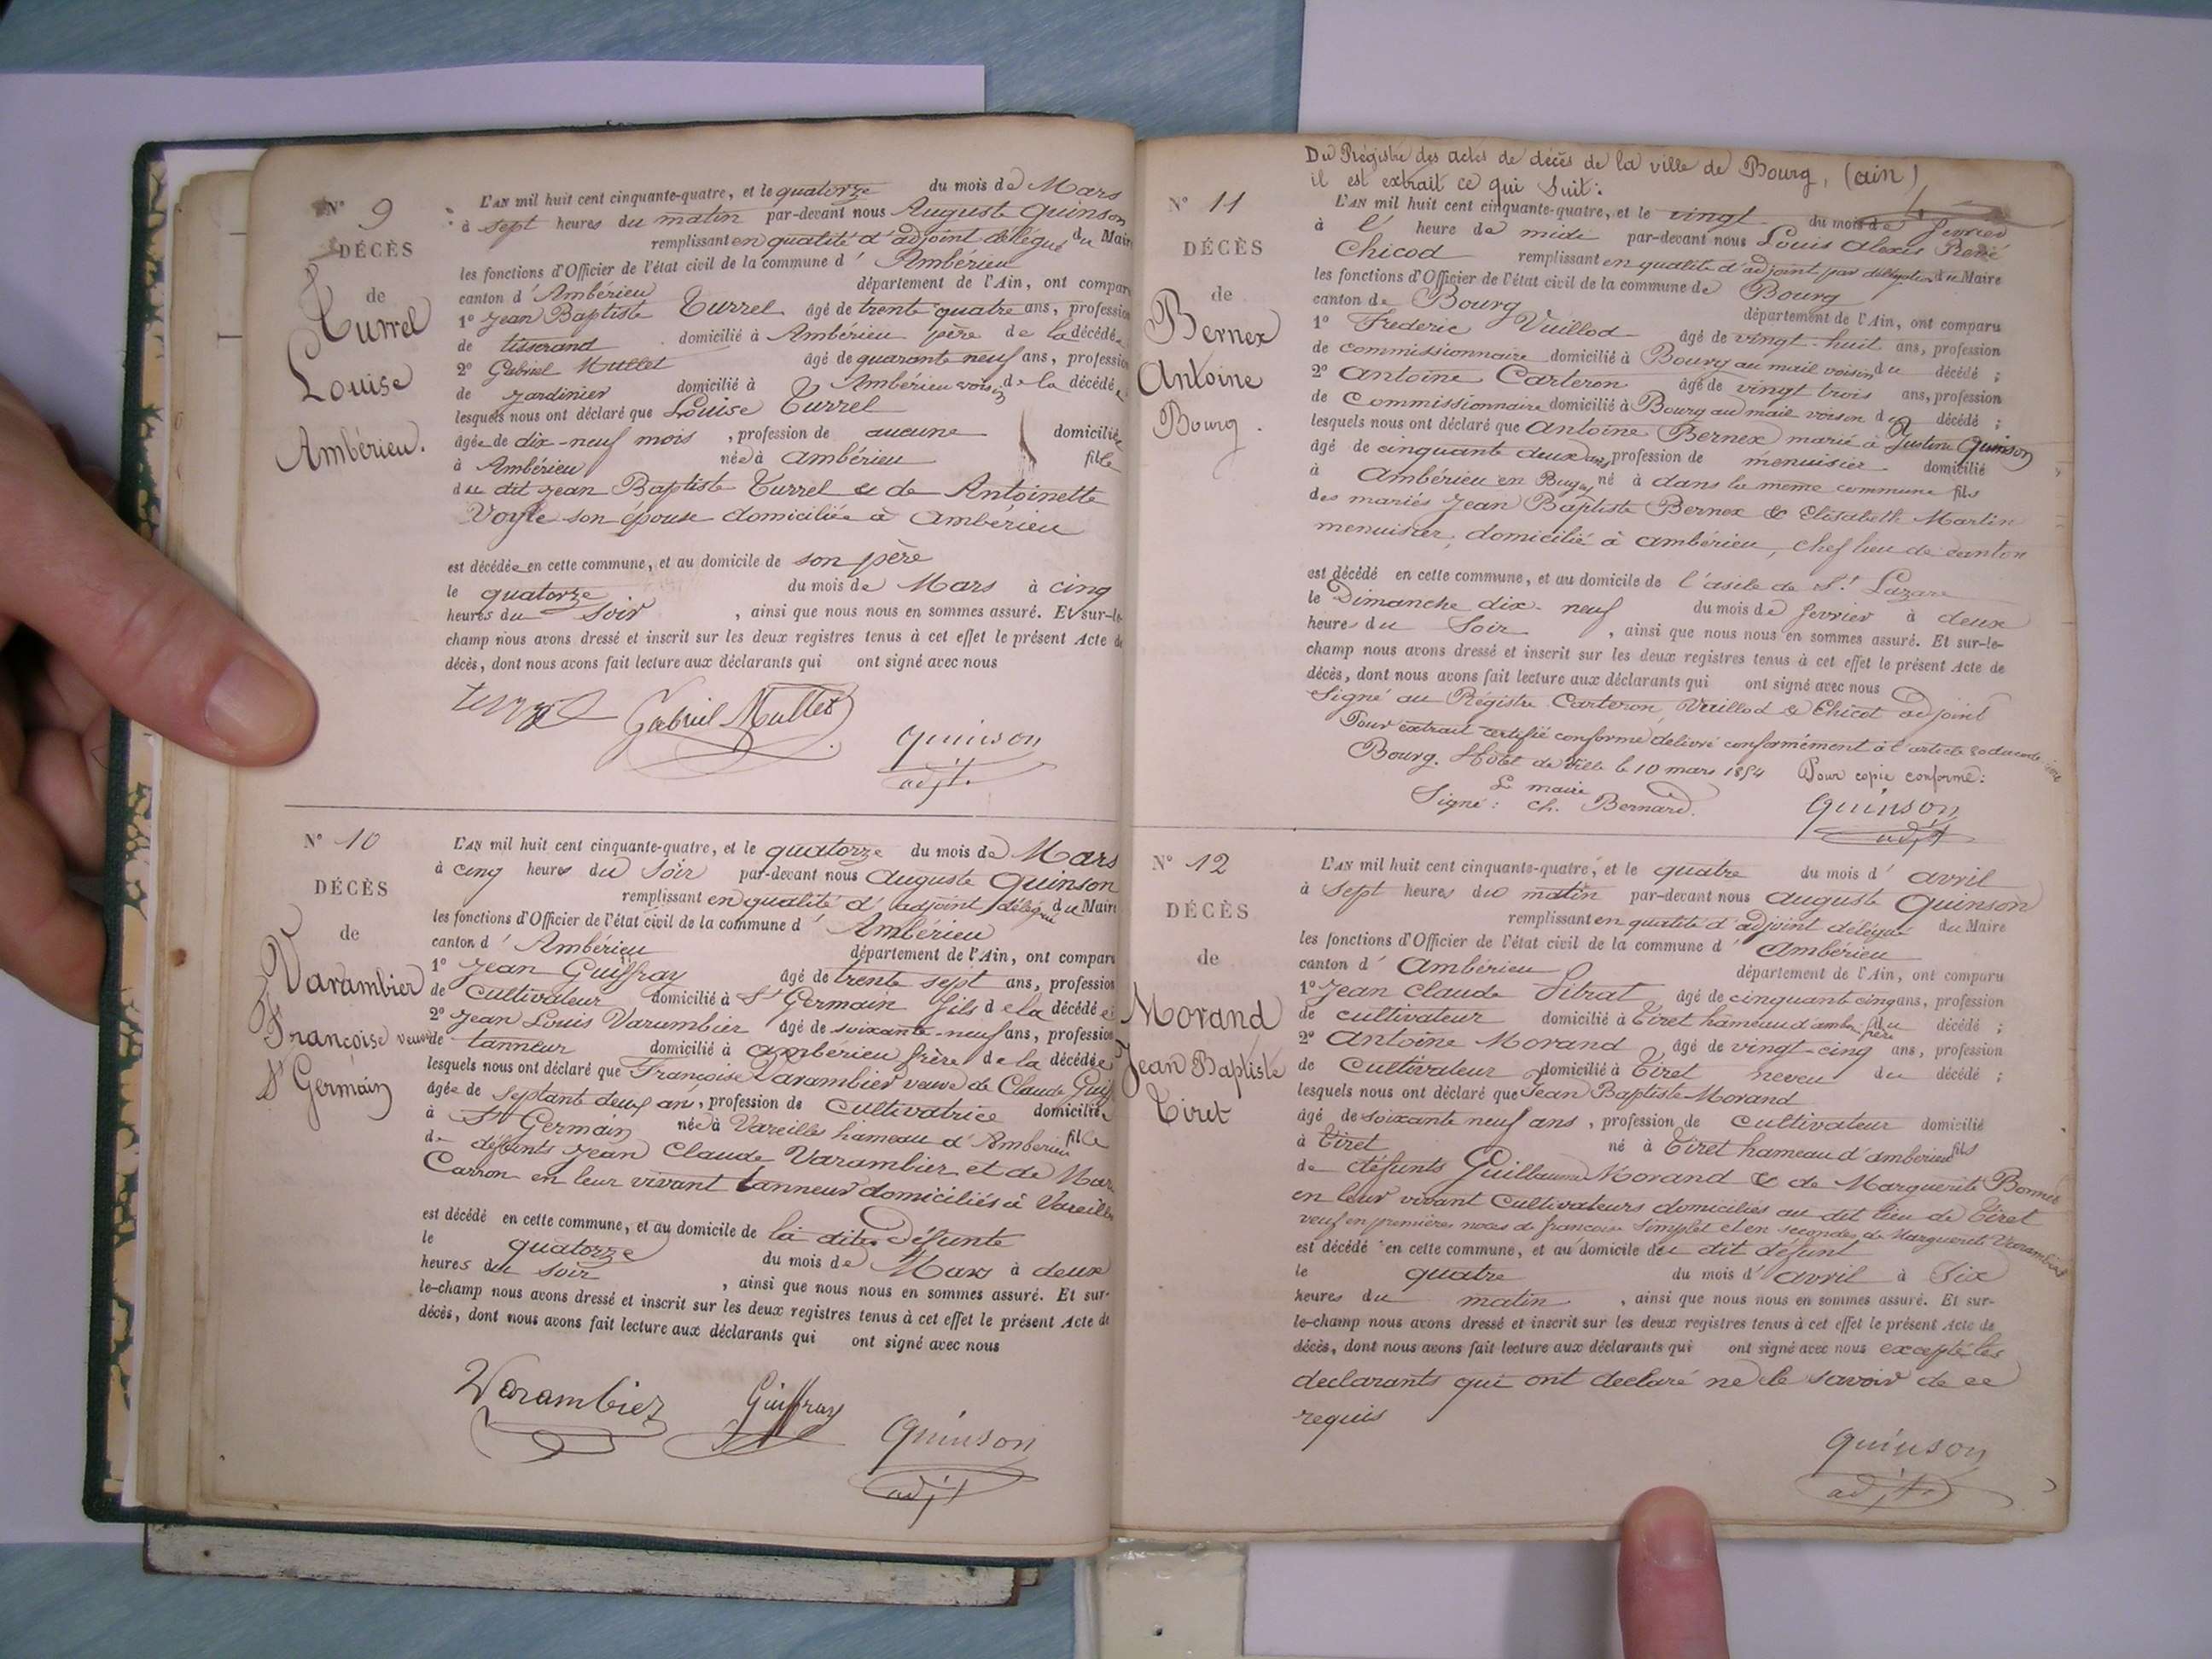 N° 9
DÉCÈS
de
Turrel
Louise
Ambérieu.
L'AN mil huit cent cinquante-quatre, et le quatorze du mois de Mars
à sept heures du matin par-devant nous Auguste Quinson
remplissant en qualité d'adjoint délégué du Maire
les fonctions d'Officier de l'état civil de la commune d' Ambérieu
canton d' Ambérieu département de l'Ain, ont comparu
1° Jean Baptiste Turrel âgé de trente quatre ans, profession
de tisserand domicilié à Ambérieu père de la décédée
2° Gabriel Mullet âgé de quarante neuf ans, profession
de Jardinier domicilié à Ambérieu voisin de la décédée
lesquels nous ont déclaré que Louise Turrel
âgée de dix-neuf mois, profession de aucune domiciliée
à Ambérieu née à Ambérieu fille
du dit Jean Baptiste Turrel et de Antoinette
Voyle son épouse domiciliée à Ambérieu
est décédée en cette commune, et au domicile de son père
le quatorze du mois de Mars à cinq
heures du Soir, ainsi que nous nous en sommes assuré. Et sur-le-
champ nous avons dressé et inscrit sur les deux registres tenus à cet effet le présent Acte de
décès, dont nous avons fait lecture aux déclarants qui ont signé avec nous
Gabriel Mullet
Quinson
adjt.
N° 10
DÉCÈS
de
Varambier
Françoise veuve
St Germain
L'AN mil huit cent cinquante-quatre, et le quatorze du mois de Mars
à cinq heures du Soir par-devant nous Auguste Quinson
remplissant en qualité d'adjoint délégué du Maire
les fonctions d'Officier de l'état civil de la commune d' Ambérieu
canton d' Ambérieu département de l'Ain, ont comparu
1° Jean Guiffray âgé de trente sept ans, profession
de cultivateur domicilié à St Germain fils de la décédée
2° Jean Louis Varambier âgé de soixante-neuf ans, profession
de tanneur domicilié à Ambérieu frère de la décédée
lesquels nous ont déclaré que Françoise Varambier veuve de Claude Guiff
âgée de septante deux ans, profession de cultivatrice domiciliée
à St Germain née à Vareilles hameau d'Ambérieu fille
de défunts Jean Claude Varambier et de Mar
Carron en leur vivant tanneur domiciliés à Vareilles
est décédé en cette commune, et au domicile de la dite Défunte
le quatorze du mois de Mars à deux
heures du soir, ainsi que nous nous en sommes assuré. Et sur-
le-champ nous avons dressé et inscrit sur les deux registres tenus à cet effet le présent Acte de
décès, dont nous avons fait lecture aux déclarants qui ont signé avec nous
Varambier Guiffray Quinson
adjt
Du Régistre des actes de décès de la ville de Bourg, (ain)
il est extrait ce qui suit:
N° 11
DÉCÈS
de
Bernex
Antoine
Bourg.
L'AN mil huit cent cinquante-quatre, et le vingt du mois de fevrier
à l' heure de midi par-devant nous Louis Alexis René
Chicod remplissant en qualité d'adjoint par délégation du Maire
les fonctions d'Officier de l'état civil de la commune de Bourg
canton de Bourg département de l'Ain, ont comparu
1° Frederic Vuillod âgé de vingt-huit ans, profession
de commissionnaire domicilié à Bourg au mail voisin du décédé ;
2° Antoine Carteron âgé de vingt trois ans, profession
de Commissionnaire domicilié à Bourg au mail voisin du décédé ;
lesquels nous ont déclaré que Antoine Bernex marié à Justine Quinson
âgé de cinquante deux ans, profession de menuisier domicilié
à Ambérieu en Bugey né à dans la meme commune fils
des mariés Jean Baptiste Bernex & Elisabeth Martin
menuisier, domicilié à ambérieu, chef lieu de canton
est décédé en cette commune, et au domicile de l'asile de St Lazare
le Dimanche dix-neuf du mois de fevrier à deux
heures du Soir, ainsi que nous nous en sommes assuré. Et sur-le-
champ nous avons dressé et inscrit sur les deux registres tenus à cet effet le présent Acte de
décès, dont nous avons fait lecture aux déclarants qui ont signé avec nous
Signé au Régistre Carteron, Vuillod & Chicot adjoint
Pour extrait certifié conforme délivré conformément à l'article 80 du code civil
Bourg. Hôtel de Ville le 10 mars 1854 Pour copie conforme:
Le maire
Signé: Ch. Bernard. Quinson
adjt
N° 12
DÉCÈS
de
Morand
Jean Baptiste
Tiret
L'AN mil huit cent cinquante-quatre, et le quatre du mois d' avril
à Sept heures du matin par-devant nous Auguste Quinson
remplissant en qualité d'adjoint délégué du Maire
les fonctions d'Officier de l'état civil de la commune d' Ambérieu
canton d' Ambérieu département de l'Ain, ont comparu
1° Jean Claude Sibrat âgé de cinquante cinq ans, profession
de cultivateur domicilié à Tiret hameau d'amb. frère du décédé ;
2° Antoine Morand âgé de vingt-cinq ans, profession
de Cultivateur domicilié à Tiret neveu du décédé ;
lesquels nous ont déclaré que Jean Baptiste Morand
âgé de soixante neuf ans, profession de cultivateur domicilié
à Tiret né à Tiret hameau d'ambérieu fils
de défunts Guillaume Morand & de Marguerite Bonnet
en leur vivant Cultivateurs domiciliés au dit lieu de Tiret
veuf en premières noces de françoise Simplet et en secondes de Marguerite Varambier
est décédé en cette commune, et au domicile du dit défunt
le quatre du mois d' avril à Six
heures du matin, ainsi que nous nous en sommes assuré. Et sur-
le-champ nous avons dressé et inscrit sur les deux registres tenus à cet effet le présent Acte de
décès, dont nous avons fait lecture aux déclarants qui ont signé avec nous excepté les
declarants qui ont declaré ne le savoir de ce
requis
Quinson
adjt.